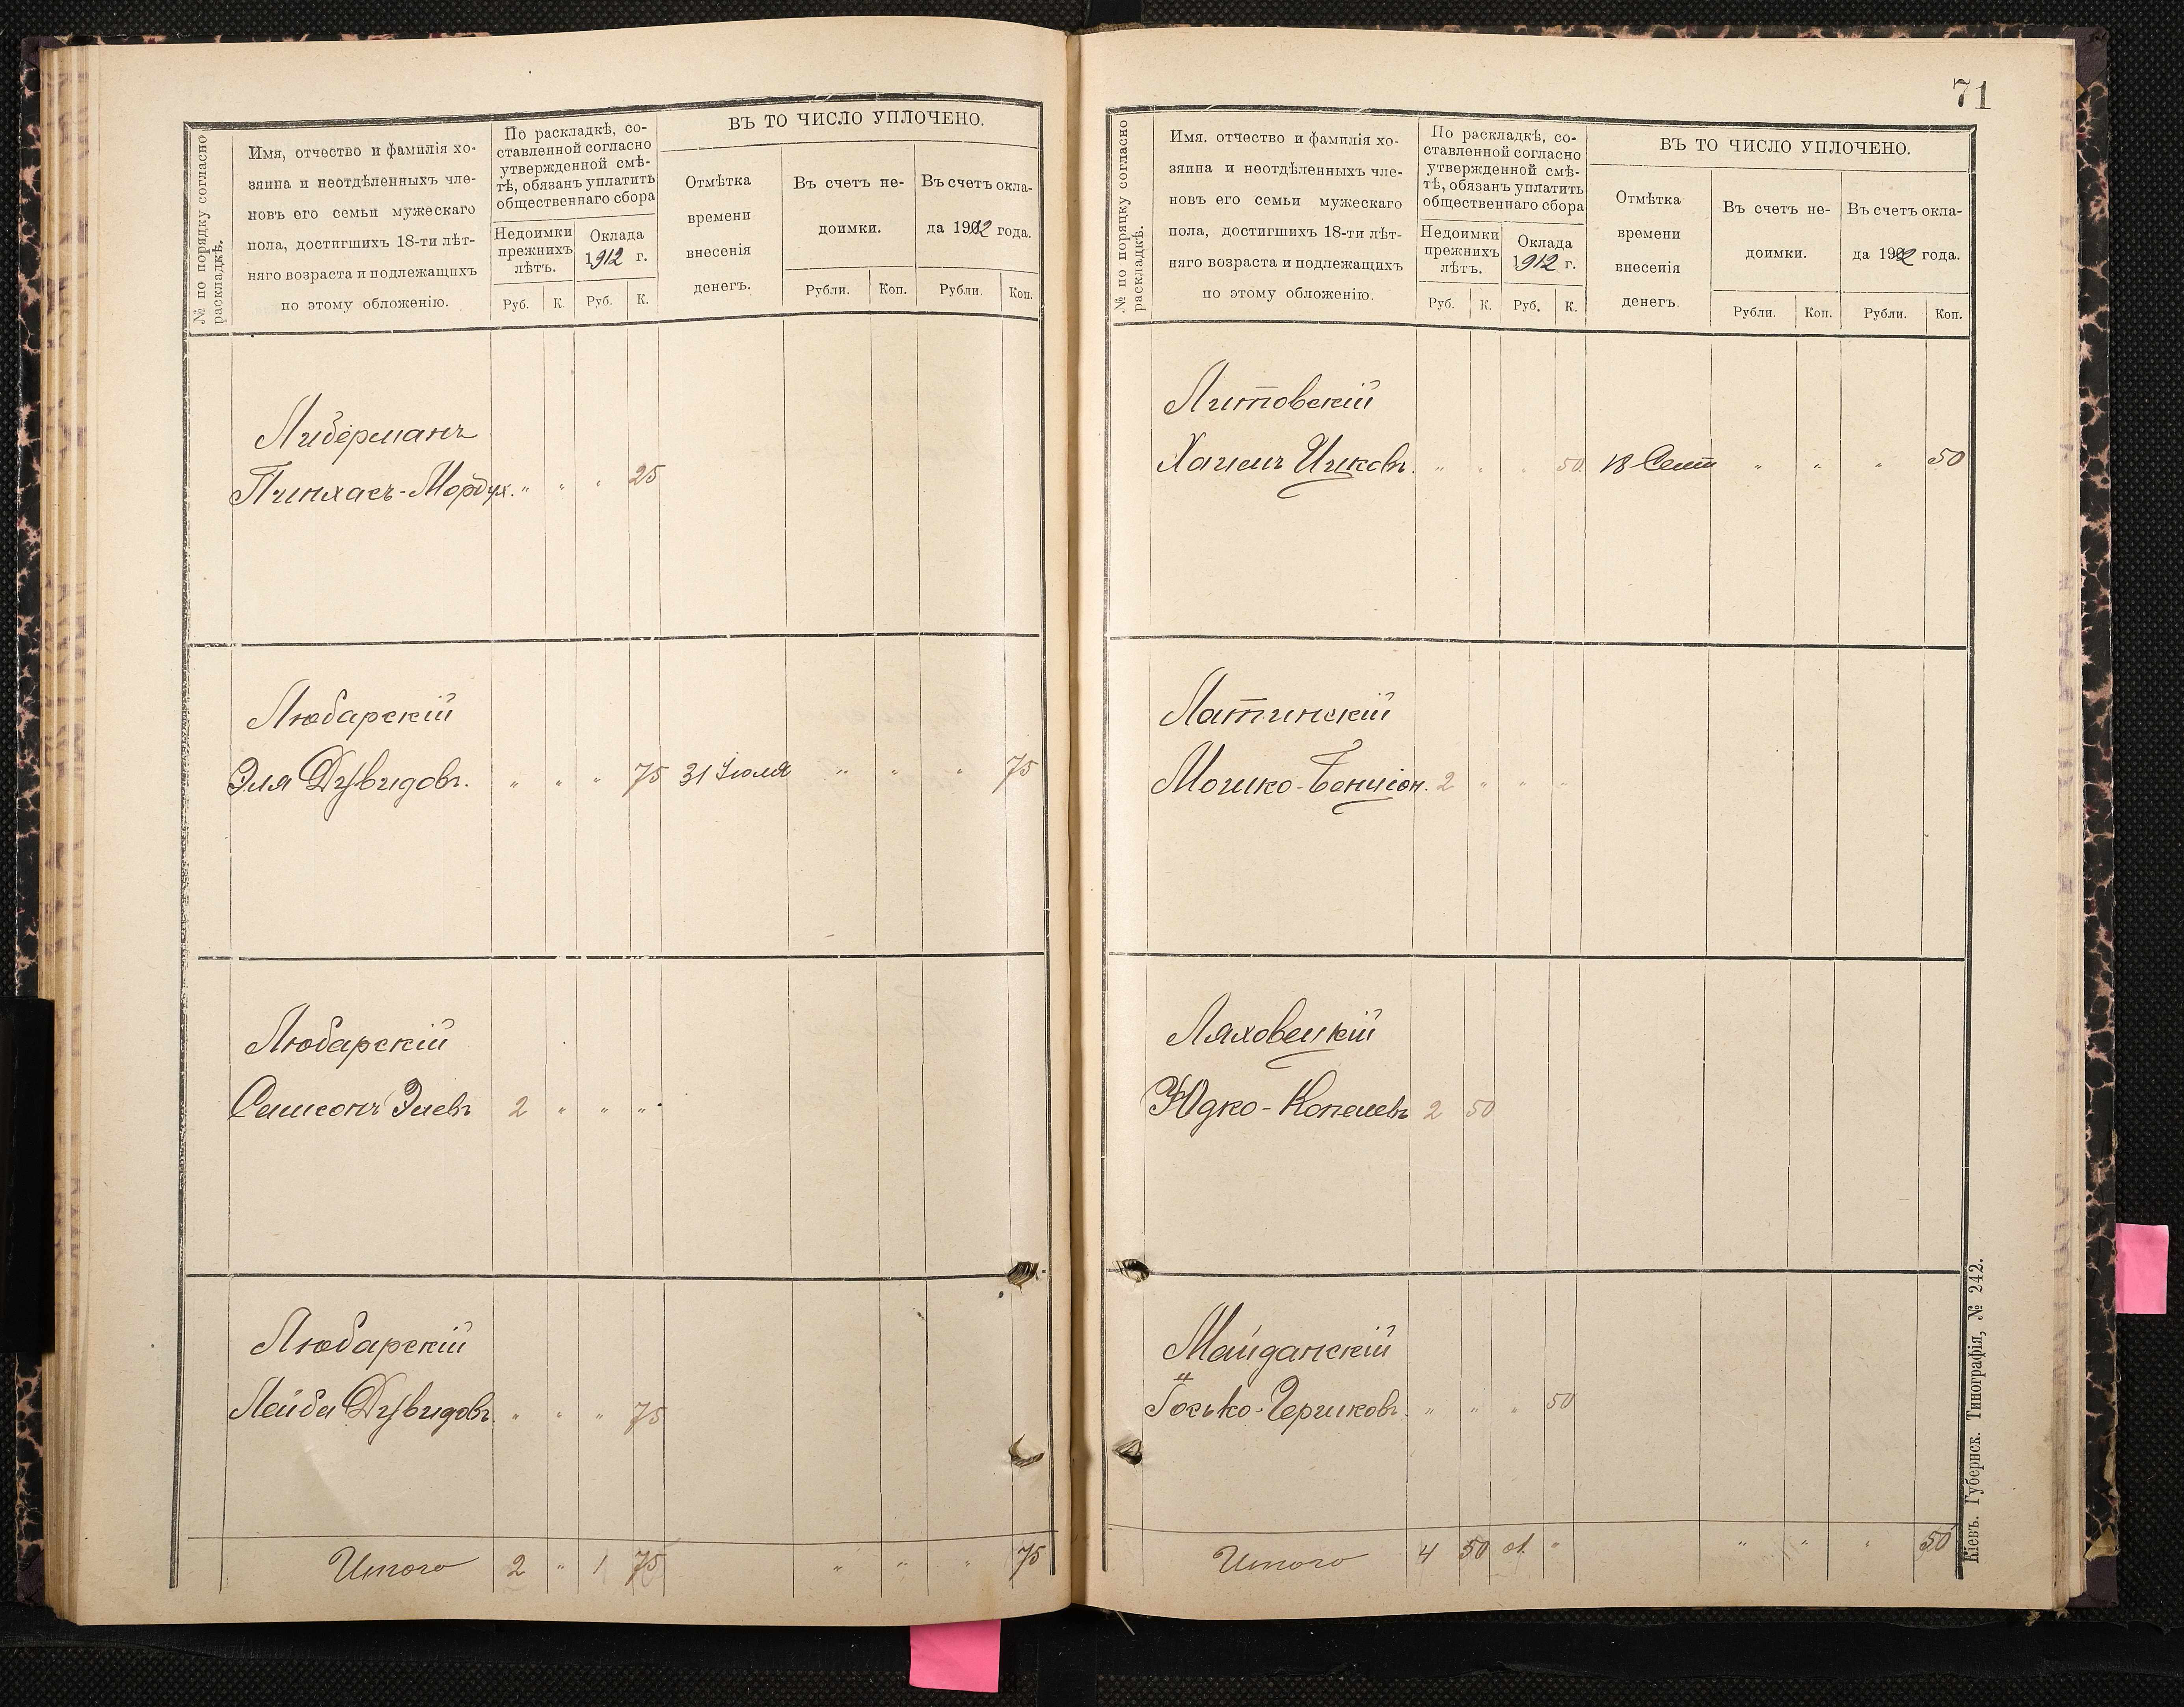 № по порядку согласно
раскладкѣ.
Имя, отчество и фамилія хо-
зяина и неотдѣленныхъ чле-
новъ его семьи мужескаго
пола, достигшихъ 18-ти лѣт-
няго возраста и подлежащихъ
по этому обложенію.
По раскладкѣ, со-
ставленной согласно
утвержденной смѣ-
тѣ, обязанъ уплатить
общественнаго сбора
Недоимки
прежнихъ
лѣтъ.
Оклада
1912 г.
Руб. К. Руб. К.
ВЪ ТО ЧИСЛО УПЛОЧЕНО.
Отмѣтка
времени
внесенія
денегъ.
Въ счетъ не-
доимки.
Рубли. Коп.
Въ счетъ окла-
да 1912 года.
Рубли. Коп.
Либерманъ
Пинхасъ-Мордух. " " " 25
Любарскій
Эля Дувидовъ. " " " 75 31 Іюля " " " 75
Любарскій
Самсонъ Элевъ 2 " " "
Любарскій
Лейба Дувидовъ. " " " 75
Итого 2 " 1 75 " " " 75
71
№ по порядку согласно
раскладкѣ.
Имя, отчество и фамилія хо-
зяина и неотдѣленныхъ чле-
новъ его семьи мужескаго
пола, достигшихъ 18-ти лѣт-
няго возраста и подлежащихъ
по этому обложенію.
По раскладкѣ, со-
ставленной согласно
утвержденной смѣ-
тѣ, обязанъ уплатить
общественнаго сбора
Недоимки
прежнихъ
лѣтъ.
Оклада
1912 г.
Руб. К. Руб. К.
ВЪ ТО ЧИСЛО УПЛОЧЕНО.
Отмѣтка
времени
внесенія
денегъ.
Въ счетъ не-
доимки.
Рубли. Коп.
Въ счетъ окла-
да 1912 года.
Рубли. Коп.
Литовскій
Хаимъ Ицковъ. " " " 50 18 Сент " " " 50
Латинскій
Мошко-Бенціон. 2 " " "
Ляховецкій
Юдко-Копелевъ 2 50
Майданскій
Іосько-Гершковъ. " " " 50
Итого 4 50 1 " " " " 50
Кіевъ. Губернск. Типографія, № 242.